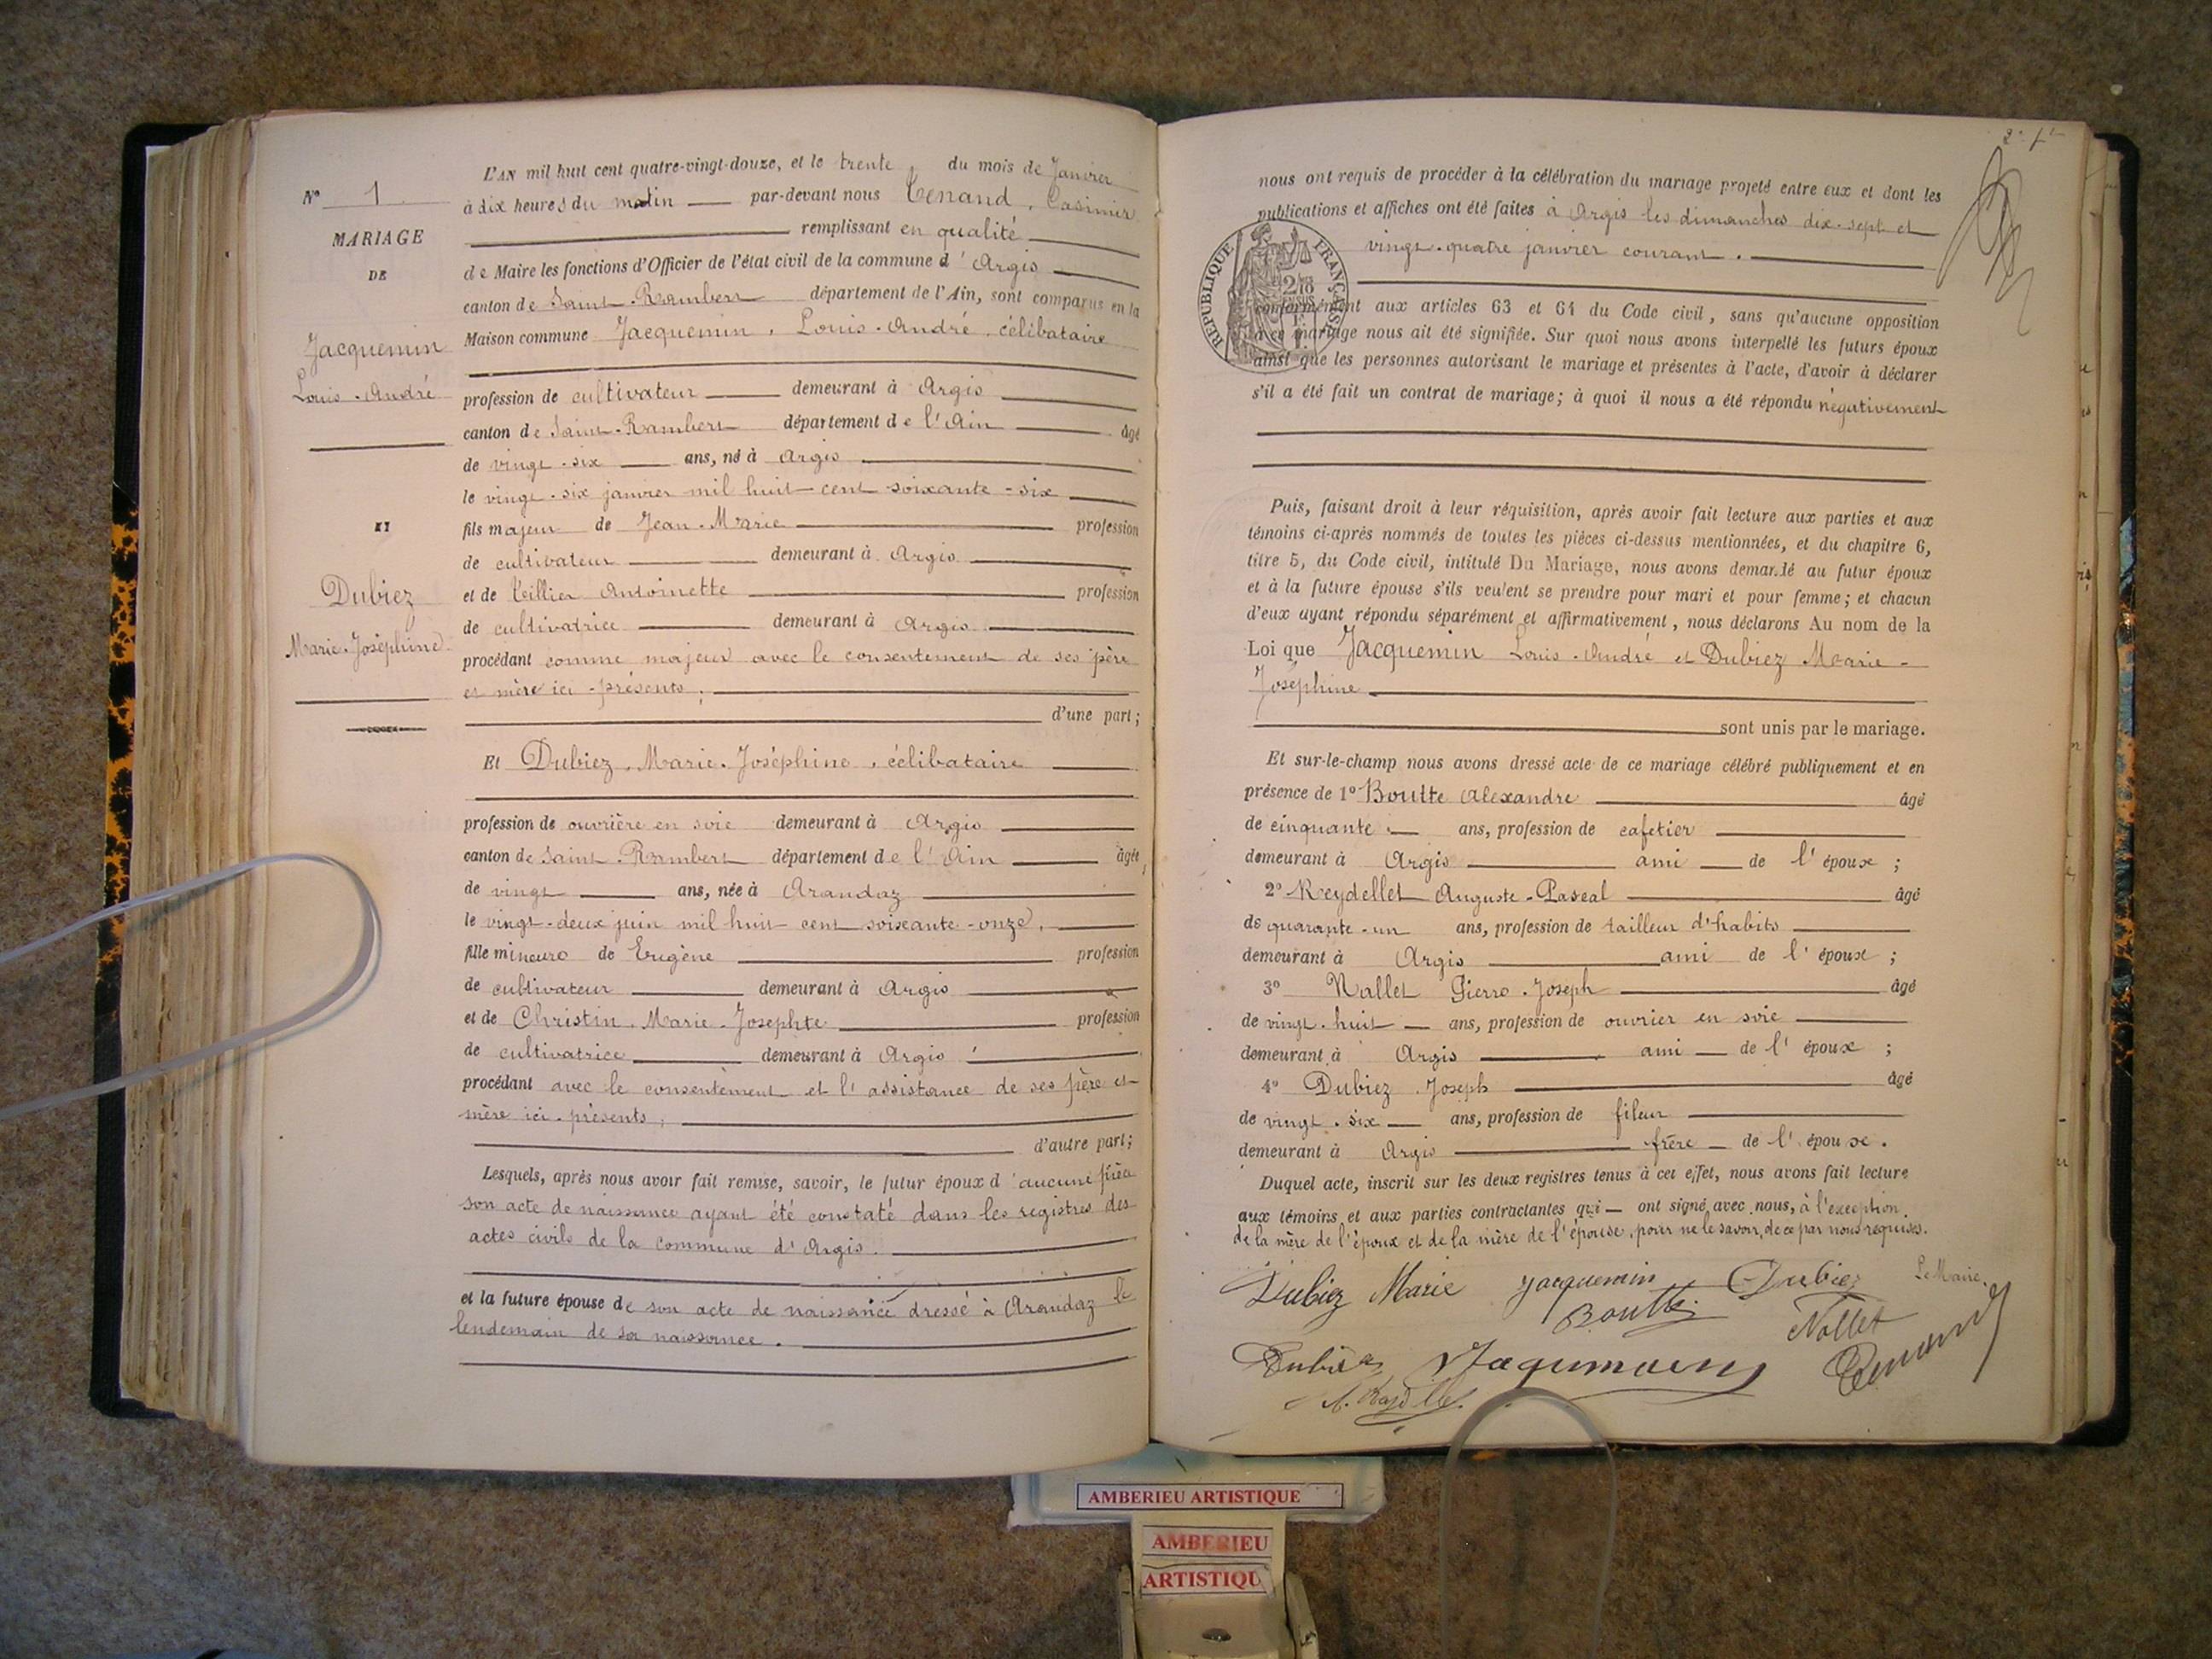 N° 1
MARIAGE
DE
Jacquemin
Louis-André
ET
Dubiez
Marie-Joséphine
L'AN mil huit cent quatre-vingt-douze, et le trente du mois de Janvier
à dix heures du matin par-devant nous Tenand, Casimir
remplissant en qualité
de Maire les fonctions d'Officier de l'état civil de la commune d'Argis
canton de Saint-Rambert département de l'Ain, sont comparus en la
Maison commune Jacquemin, Louis-André, célibataire
profession de cultivateur demeurant à Argis
canton de Saint-Rambert département de l'Ain âgé
de vingt-six ans, né à Argis
le vingt-six janvier mil huit cent soixante-six
fils majeur de Jean-Marie profession
de cultivateur demeurant à Argis
et de Teillier Antoinette profession
de cultivatrice demeurant à Argis
procédant comme majeur avec le consentement de ses père
et mère ici-présents;
d'une part;
Et Dubiez, Marie-Joséphine, célibataire
profession de ouvrière en soie demeurant à Argis
canton de Saint-Rambert département de l'Ain âgée
de vingt ans, née à Arandaz
le vingt-deux juin mil huit cent soixante-onze,
fille mineure de Eugène profession
de cultivateur demeurant à Argis
et de Christin, Marie-Josephte profession
de cultivatrice demeurant à Argis
procédant avec le consentement et l'assistance de ses père et
mère ici-présents,
d'autre part;
Lesquels, après nous avoir fait remise, savoir, le futur époux d'aucune pièce
son acte de naissance ayant été constaté dans les registres des
actes civils de la commune d'Argis.
et la future épouse de son acte de naissance dressé à Arandaz le
lendemain de sa naissance.
2e ft
nous ont requis de procéder à la célébration du mariage projeté entre eux et dont les
publications et affiches ont été faites à Argis les dimanches dix-sept et
vingt-quatre janvier courant.
RÉPUBLIQUE FRANÇAISE
conformément aux articles 63 et 64 du Code civil, sans qu'aucune opposition
à ce mariage nous ait été signifiée. Sur quoi nous avons interpellé les futurs époux
ainsi que les personnes autorisant le mariage et présentes à l'acte, d'avoir à déclarer
s'il a été fait un contrat de mariage; à quoi il nous a été répondu négativement
Puis, faisant droit à leur réquisition, après avoir fait lecture aux parties et aux
témoins ci-après nommés de toutes les pièces ci-dessus mentionnées, et du chapitre 6,
titre 5, du Code civil, intitulé Du Mariage, nous avons demandé au futur époux
et à la future épouse s'ils veulent se prendre pour mari et pour femme; et chacun
d'eux ayant répondu séparément et affirmativement, nous déclarons Au nom de la
Loi que Jacquemin Louis-André et Dubiez Marie-
Joséphine
sont unis par le mariage.
Et sur-le-champ nous avons dressé acte de ce mariage célébré publiquement et en
présence de 1° Boutte Alexandre âgé
de cinquante ans, profession de cafetier
demeurant à Argis ami de l'époux;
2° Reydellet Auguste-Pascal âgé
de quarante-un ans, profession de tailleur d'habits
demeurant à Argis ami de l'époux;
3° Nallet Pierre-Joseph âgé
de vingt-huit ans, profession de ouvrier en soie
demeurant à Argis ami de l'époux;
4° Dubiez Joseph âgé
de vingt-six ans, profession de fileur
demeurant à Argis frère de l'épouse.
Duquel acte, inscrit sur les deux registres tenus à cet effet, nous avons fait lecture
aux témoins et aux parties contractantes qui ont signé avec nous, à l'exception
de la mère de l'époux et de la mère de l'épouse, pour ne le savoir, de ce par nous requises.
Dubiez Marie Jacquemin Dubiez Le Maire,
Boutte Nallet
Dubiez Jaqumain Tenand
AMBERIEU ARTISTIQUE
AMBERIEU
ARTISTIQU